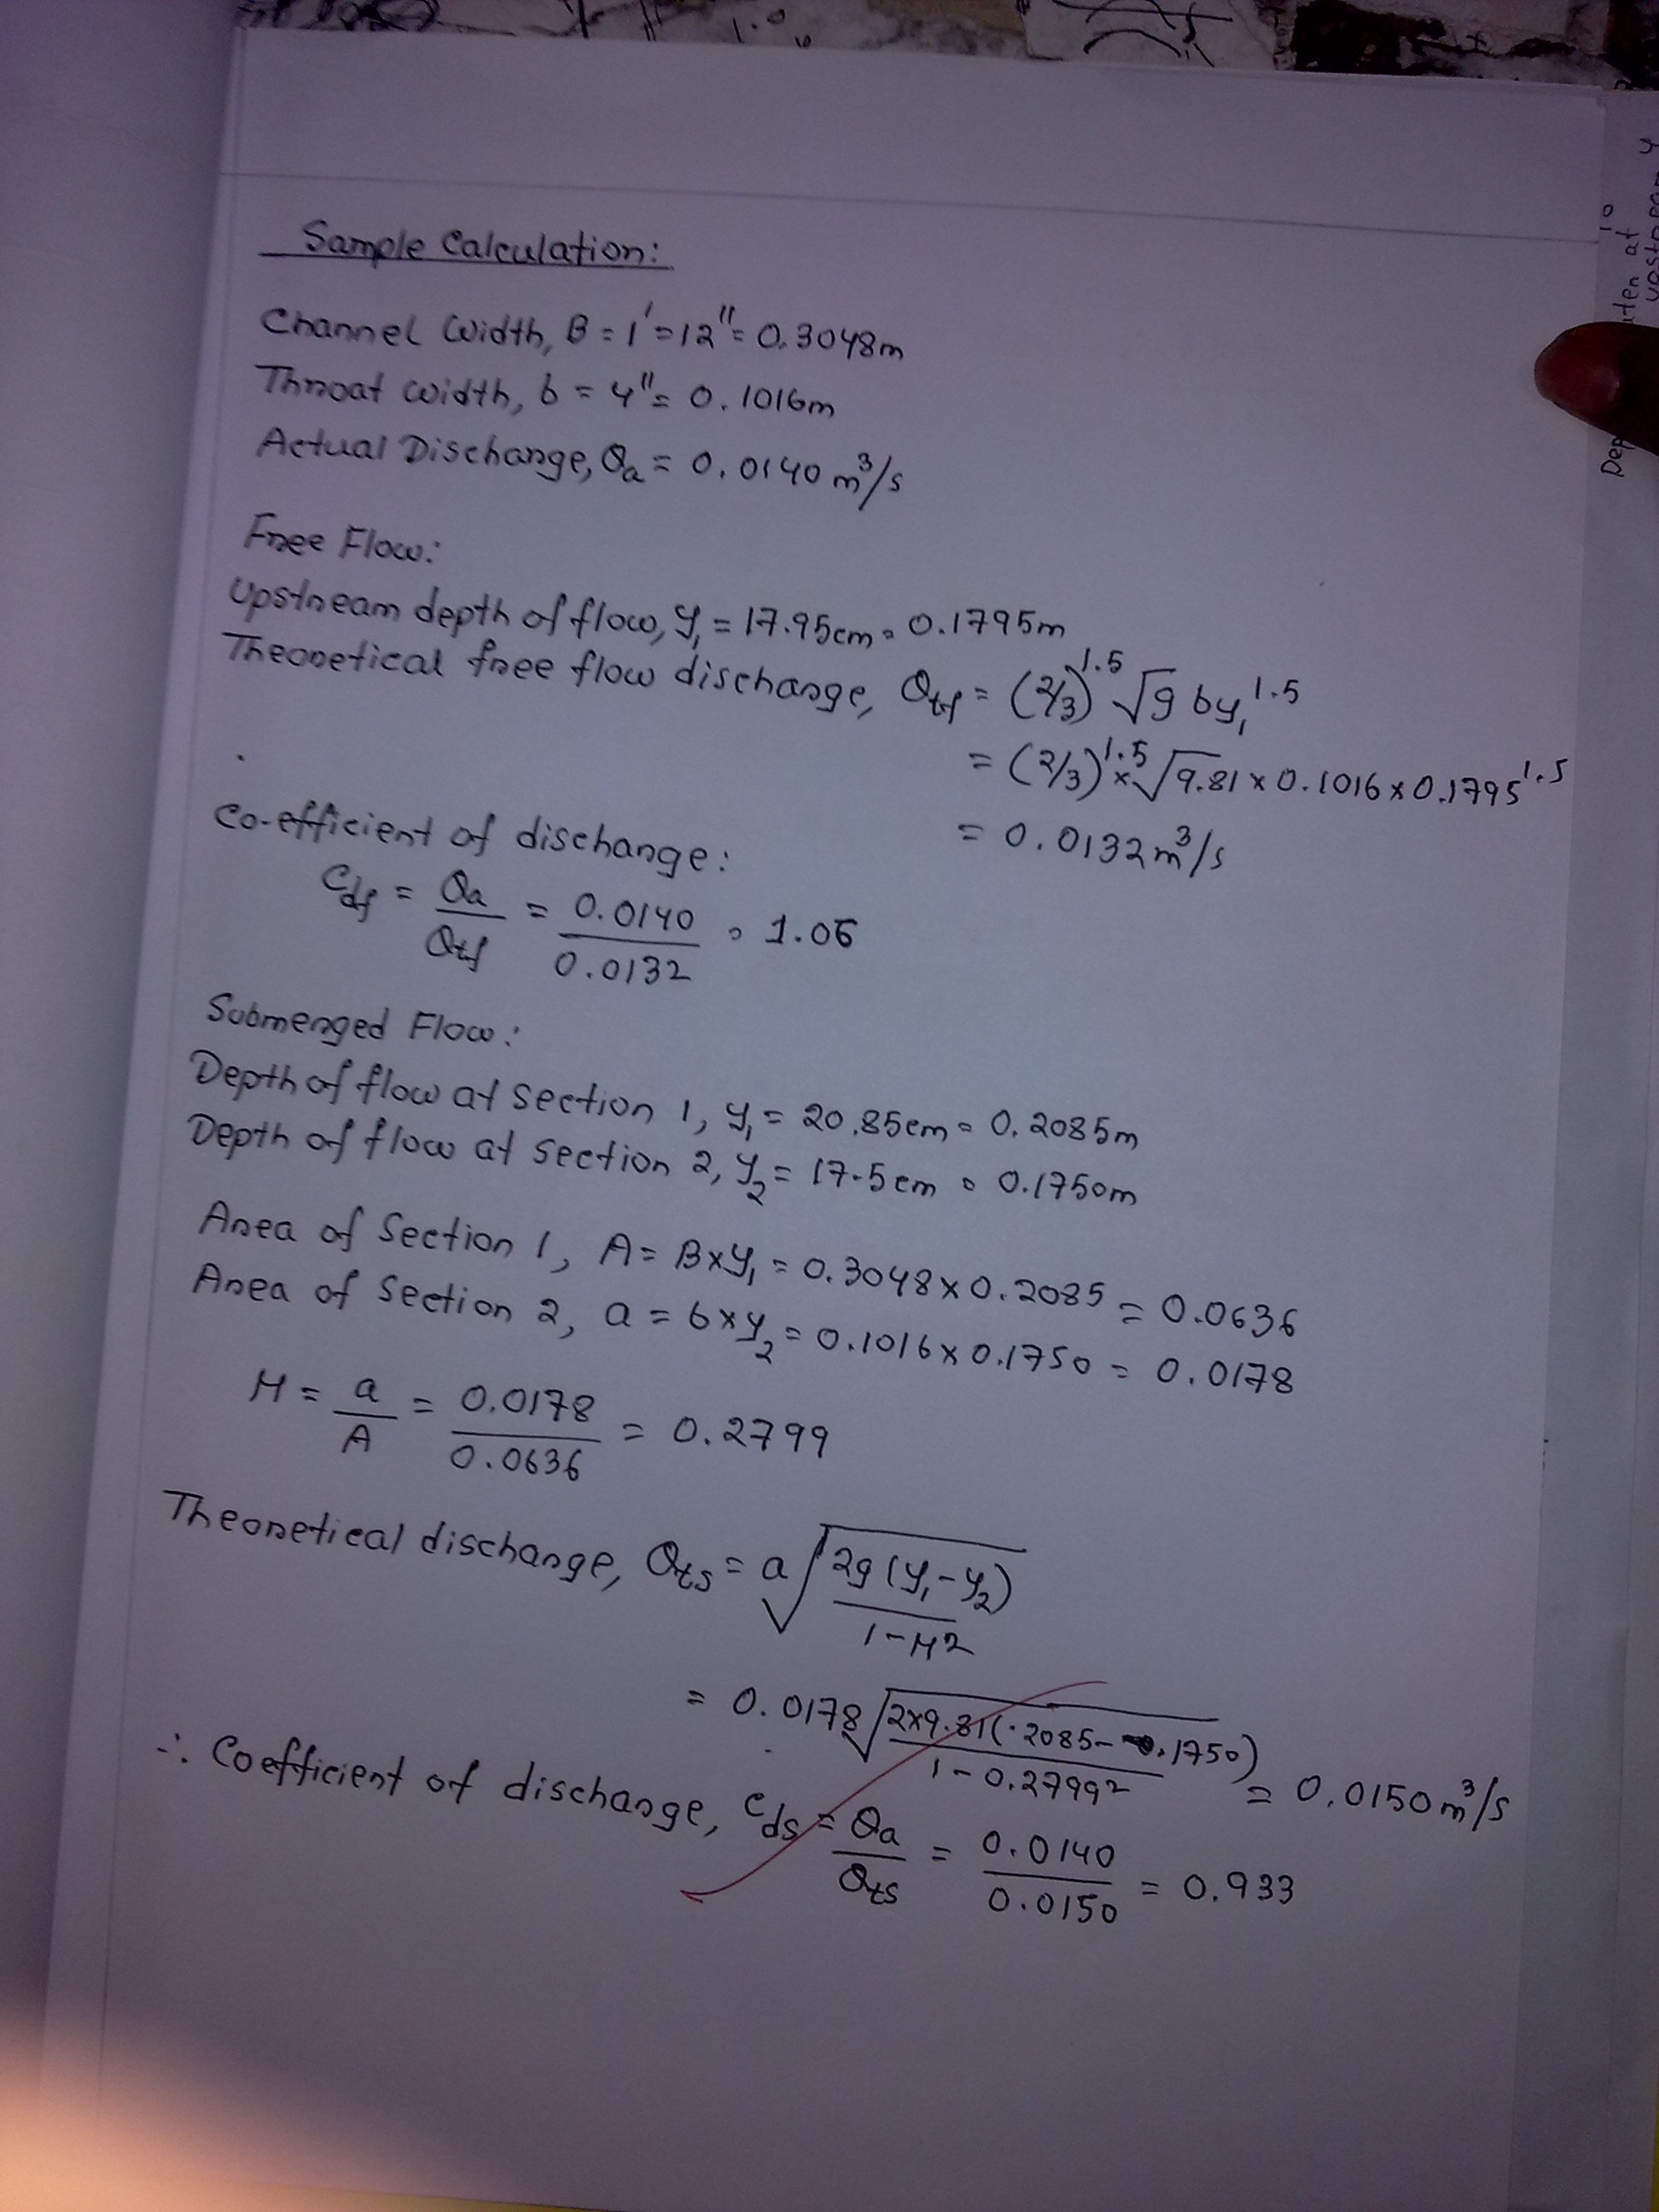 Sample Calculation:
Channel Width, B = 1' = 12" = 0.3048m
Throat width, b = 4" = 0.1016m
Actual Discharge, Qa = 0.0140 m³/s
Free Flow:
Upstream depth of flow, y₁ = 17.95cm = 0.1795m
Theoretical free flow discharge, Qtf = (2/3)^1.5 √g by₁^1.5
= (2/3)^1.5 × √9.81 × 0.1016 × 0.1795^1.5
= 0.0132 m³/s
Co-efficient of discharge:
Cdf = Qa/Qtf = 0.0140/0.0132 = 1.06
Submerged Flow:
Depth of flow at section 1, y₁ = 20.85cm = 0.2085m
Depth of flow at section 2, y₂ = 17.5cm = 0.1750m
Area of Section 1, A = B×y₁ = 0.3048×0.2085 = 0.0636
Area of Section 2, a = b×y₂ = 0.1016×0.1750 = 0.0178
M = a/A = 0.0178/0.0636 = 0.2799
Theoretical discharge, Qts = a√(2g(y₁-y₂)/(1-M²))
= 0.0178√(2×9.81(.2085-0.1750)/(1-0.2799²)) = 0.0150 m³/s
∴ Coefficient of discharge, Cds = Qa/Qts = 0.0140/0.0150 = 0.933